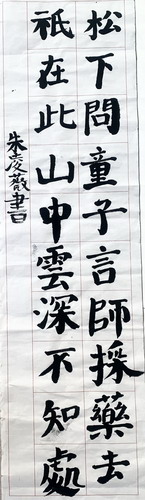 松下問童子言師採藥去
祇在此山中雲深不知處
朱慶薇書